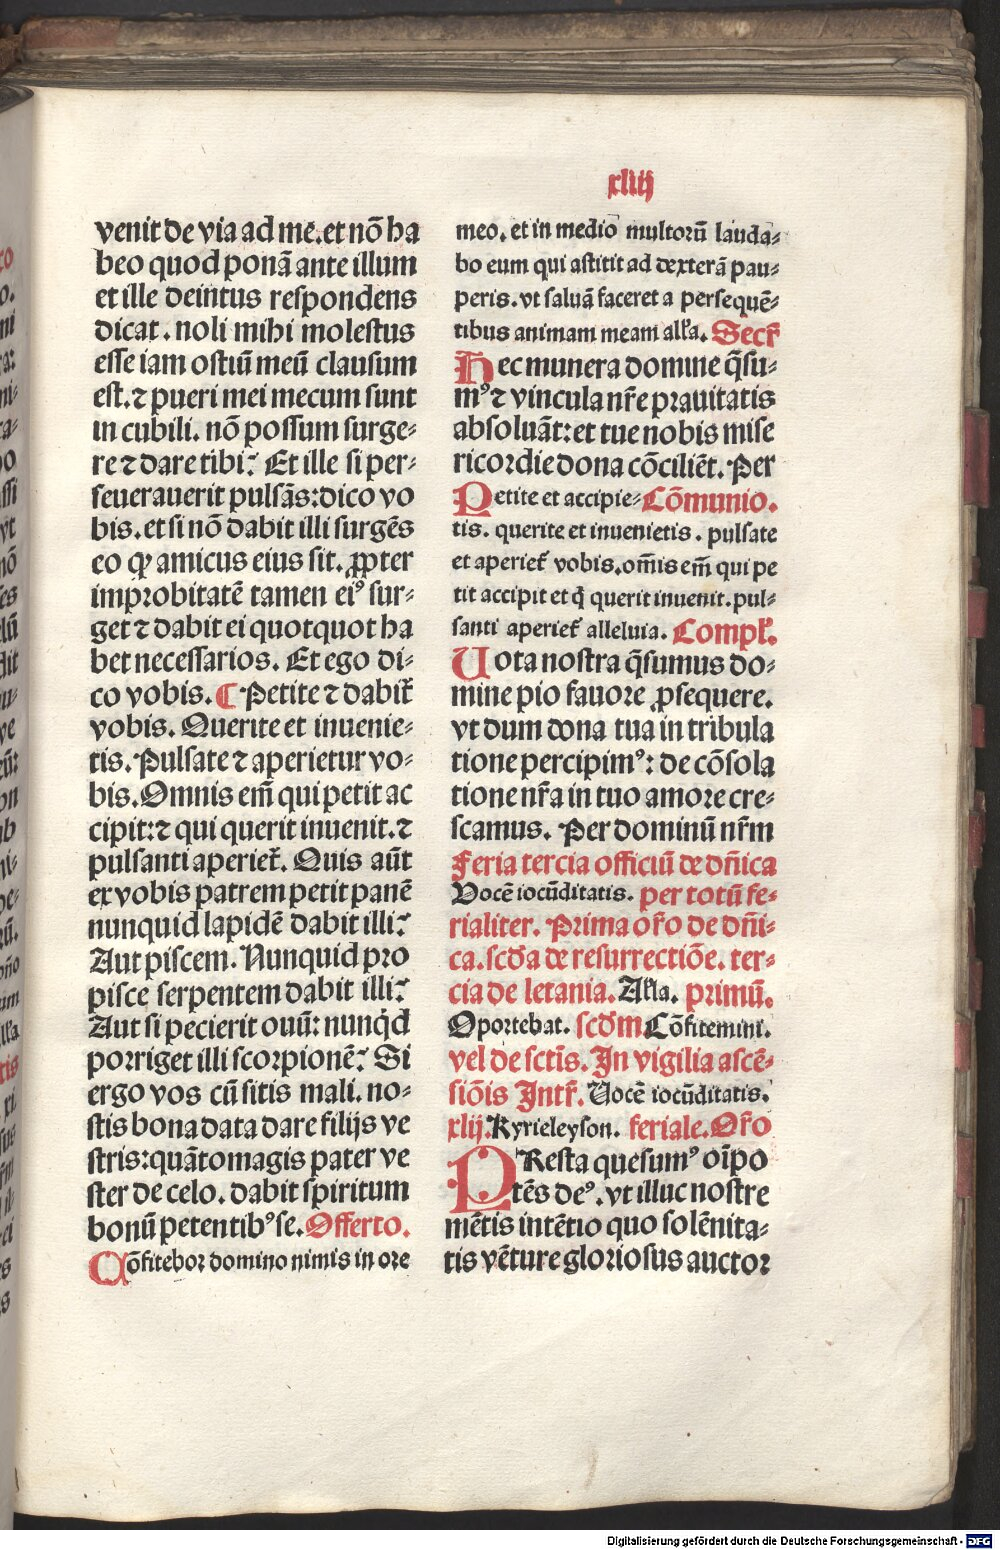 xliij
venit de via ad me. et nō ha
beo quod ponā ante illum
et ille deintus respondens
dicat. noli mihi molestus
esse iam ostiū meū clausum
est. ⁊ pueri mei mecum sunt
in cubili. nō possum surge⸗
re ⁊ dare tibi? Et ille si per⸗
seuerauerit pulsās: dico vo
bis. et si nō dabit illi surgēs
eo ꝙ amicus eius sit. ꝓpter
improbitatē tamen eiꝰ sur⸗
get ⁊ dabit ei quotquot ha
bet necessarios. Et ego di⸗
co vobis. ¶ Petite ⁊ dabit̃
vobis. Querite et inuenie⸗
tis. Pulsate ⁊ aperietur vo⸗
bis. Omnis em̄ qui petit ac
cipit: ⁊ qui querit inuenit. ⁊
pulsanti aperiet̃. Quis aūt
ex vobis patrem petit panē
nunquid lapidē dabit illi?
Aut piscem. Nunquid pro
pisce serpentem dabit illi?
Aut si pecierit ouū: nunq̇d
porriget illi scorpionē? Si
ergo vos cū sitis mali. no⸗
stis bona data dare filijs ve
stris: quāto magis pater ve
ster de celo. dabit spiritum
bonū petentibꝰ se. Offerto.
Cōfitebor domino nimis in ore
meo. et in medio multorū lauda⸗
bo eum qui astitit ad dexterā pau⸗
peris. vt saluā faceret a persequē⸗
tibus animam meam alła. Secr̃
Hec munera domine q̄su⸗
mꝰ ⁊ vincula nr̄e prauitatis
absoluāt: et tue nobis mise
ricordie dona cōciliēt. Per
Petite et accipie⸗ Cōmunio.
tis. querite et inuenietis. pulsate
et aperiet̃ vobis. om̄is em̄ qui pe
tit accipit et q̇ querit inuenit. pul⸗
santi aperiet̃ alleluia. Compł.
Uota nostra q̄sumus do⸗
mine pio fauore ꝓsequere.
vt dum dona tua in tribula
tione percipimꝰ: de cōsola
tione nr̄a in tuo amore cre⸗
scamus. Per dominū nr̄m
Feria tercia officiū de dn̄ica
Vocē iocūditatis. per totū fe⸗
rialiter. Prima or̄o de dn̄i⸗
ca. scd̄a de resurrectiōe. ter⸗
cia de letania. Alła. primū.
Oportebat. scd̄m Cōfitemini.
vel de sctīs. In vigilia ascē⸗
siōis Intr̃. Vocē iocūditatis.
xlij. Kyrieleyson. feriale. Or̄o
PResta quesumꝰ oīpo
tēs deꝰ. vt illuc nostre
mētis intētio quo solēnita⸗
tis vēture gloriosus auctor
Digitalisierung gefördert durch die Deutsche Forschungsgemeinschaft - DFG